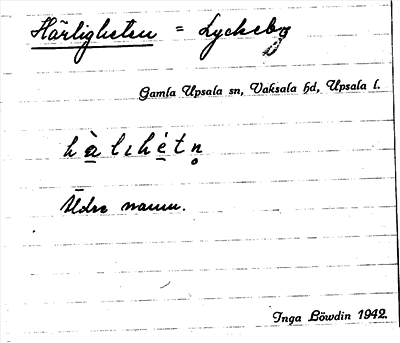 Härligheten = Lyckeby
Gamla Upsala sn, Vaksala hd, Upsala l.
hàlıhétn̥
Äldre namn.
Inga Löwdin 1942.